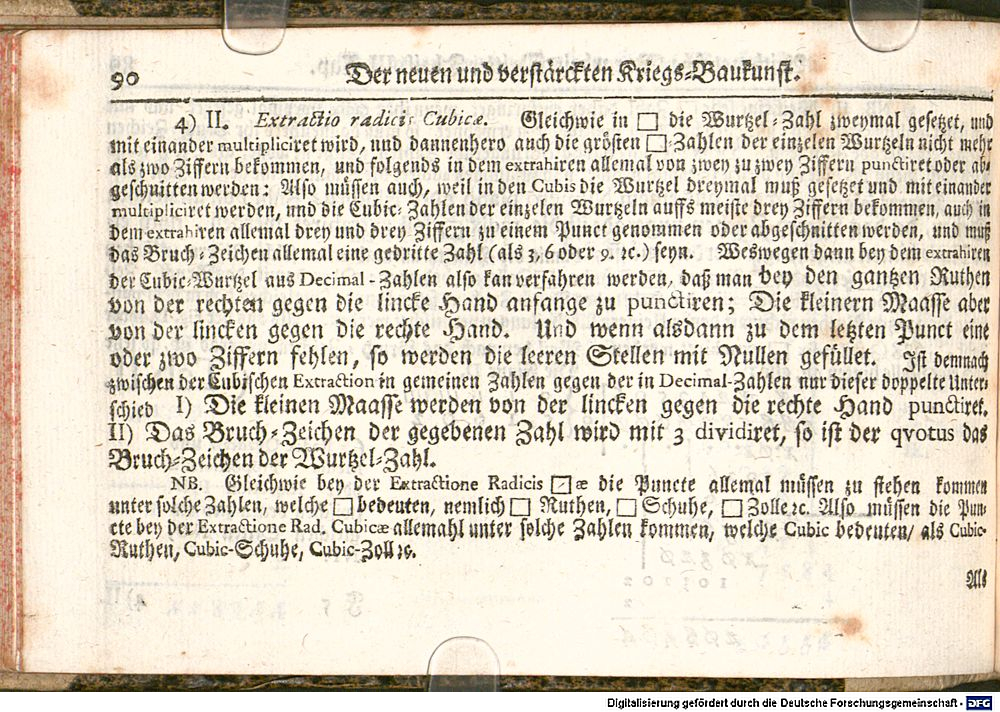 90 Der neuen und verstärckten Kriegs-Baukunst.
4) II. Extractio radicis Cubicæ. Gleichwie in □ die Wurtzel-Zahl zweymal gesetzet, und
mit einander multipliciret wird, und dannenhero auch die grösten □-Zahlen der einzelen Wurtzeln nicht mehr
als zwo Ziffern bekommen, und folgends in dem extrahiren allemal von zwey zu zwey Ziffern punctiret oder ab-
geschnitten werden: Also müssen auch, weil in den Cubis die Wurtzel dreymal muß gesetzet und mit einander
multipliciret werden, und die Cubic-Zahlen der einzelen Wurtzeln auffs meiste drey Ziffern bekommen, auch in
dem extrahiren allemal drey und drey Ziffern zu einem Punct genommen oder abgeschnitten werden, und muß
das Bruch-Zeichen allemal eine gedritte Zahl (als 3, 6 oder 9. ꝛc.) seyn. Weswegen dann bey dem extrahiren
der Cubic-Wurtzel aus Decimal-Zahlen also kan verfahren werden, daß man bey den gantzen Ruthen
von der rechten gegen die lincke Hand anfange zu punctiren; Die kleinern Maasse aber
von der lincken gegen die rechte Hand. Und wenn alsdann zu dem letzten Punct eine
oder zwo Ziffern fehlen, so werden die leeren Stellen mit Nullen gefüllet. Ist demnach
zwischen der Cubischen Extraction in gemeinen Zahlen gegen der in Decimal-Zahlen nur dieser doppelte Unter-
schied I) Die kleinen Maasse werden von der lincken gegen die rechte Hand punctiret.
II) Das Bruch-Zeichen der gegebenen Zahl wird mit 3 dividiret, so ist der qvotus das
Bruch-Zeichen der Wurtzel-Zahl.
NB. Gleichwie bey der Extractione Radicis □æ die Puncte allemal müssen zu stehen kommen
unter solche Zahlen, welche □ bedeuten, nemlich □ Ruthen, □ Schuhe, □ Zolle ꝛc. Also müssen die Pun-
cte bey der Extractione Rad. Cubicæ allemahl unter solche Zahlen kommen, welche Cubic bedeuten/ als Cubic-
Ruthen, Cubic-Schuhe, Cubic-Zoll ꝛc.
Als
Digitalisierung gefördert durch die Deutsche Forschungsgemeinschaft - DFG